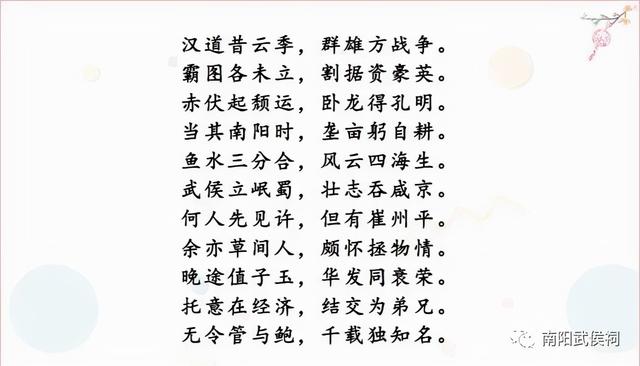 汉道昔云季，群雄方战争。
霸图各未立，割据资豪英。
赤伏起颓运，卧龙得孔明。
当其南阳时，垄亩躬自耕。
鱼水三分合，风云四海生。
武侯立岷蜀，壮志吞戚京。
何人先见许，但有崔州平。
余亦草间人，颇怀拯物情。
晚途值子玉，华发同衰荣。
托意在经济，结交为弟兄。
无令管与鲍，千载独知名。
南阳武侯祠